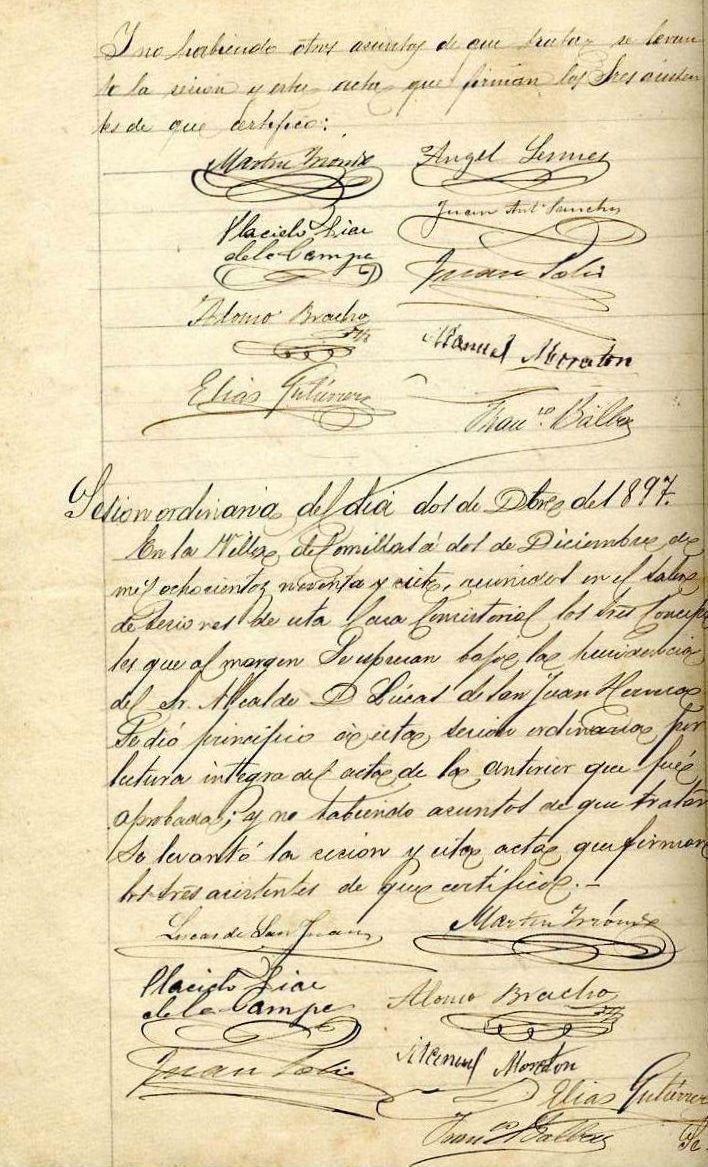 Y no habiendo otros asuntos de que tratar se levan
to la sesion y esta acta que firman los Sres asisten
tes de que certifico:
Martin
Angel
Placido Diaz
de la Campa
Juan Antº Sanchez
Juan Solis
Alonso Bracho
Manuel Moraton
Elias Gutierrez
Francº Balbas
Sesion ordinaria del dia dos de Dbre de 1897.
En la Villa de Comillas á dos de Diciembre de
mil ochocientos noventa y siete, reunidos en el salon
de sesiones de esta Casa Consistorial los Sres Conceja
les que al margen se espresan bajo la presidencia
del Sr. Alcalde D. Lúcas de San Juan Herrera
Se dió principio á esta sesion ordinaria, por
lectura integra del acta de la anterior que fué
aprobada; y no habiendo asuntos de que tratar
se levantó la secion y esta acta que firman
los Sres asistentes de que certifico.-
Lucas de San Juan
Martin
Placido Diaz
de la Campa
Alonso Bracho
Juan Solis
Manuel Moraton
Elias Gutierrez
Francº Balbas